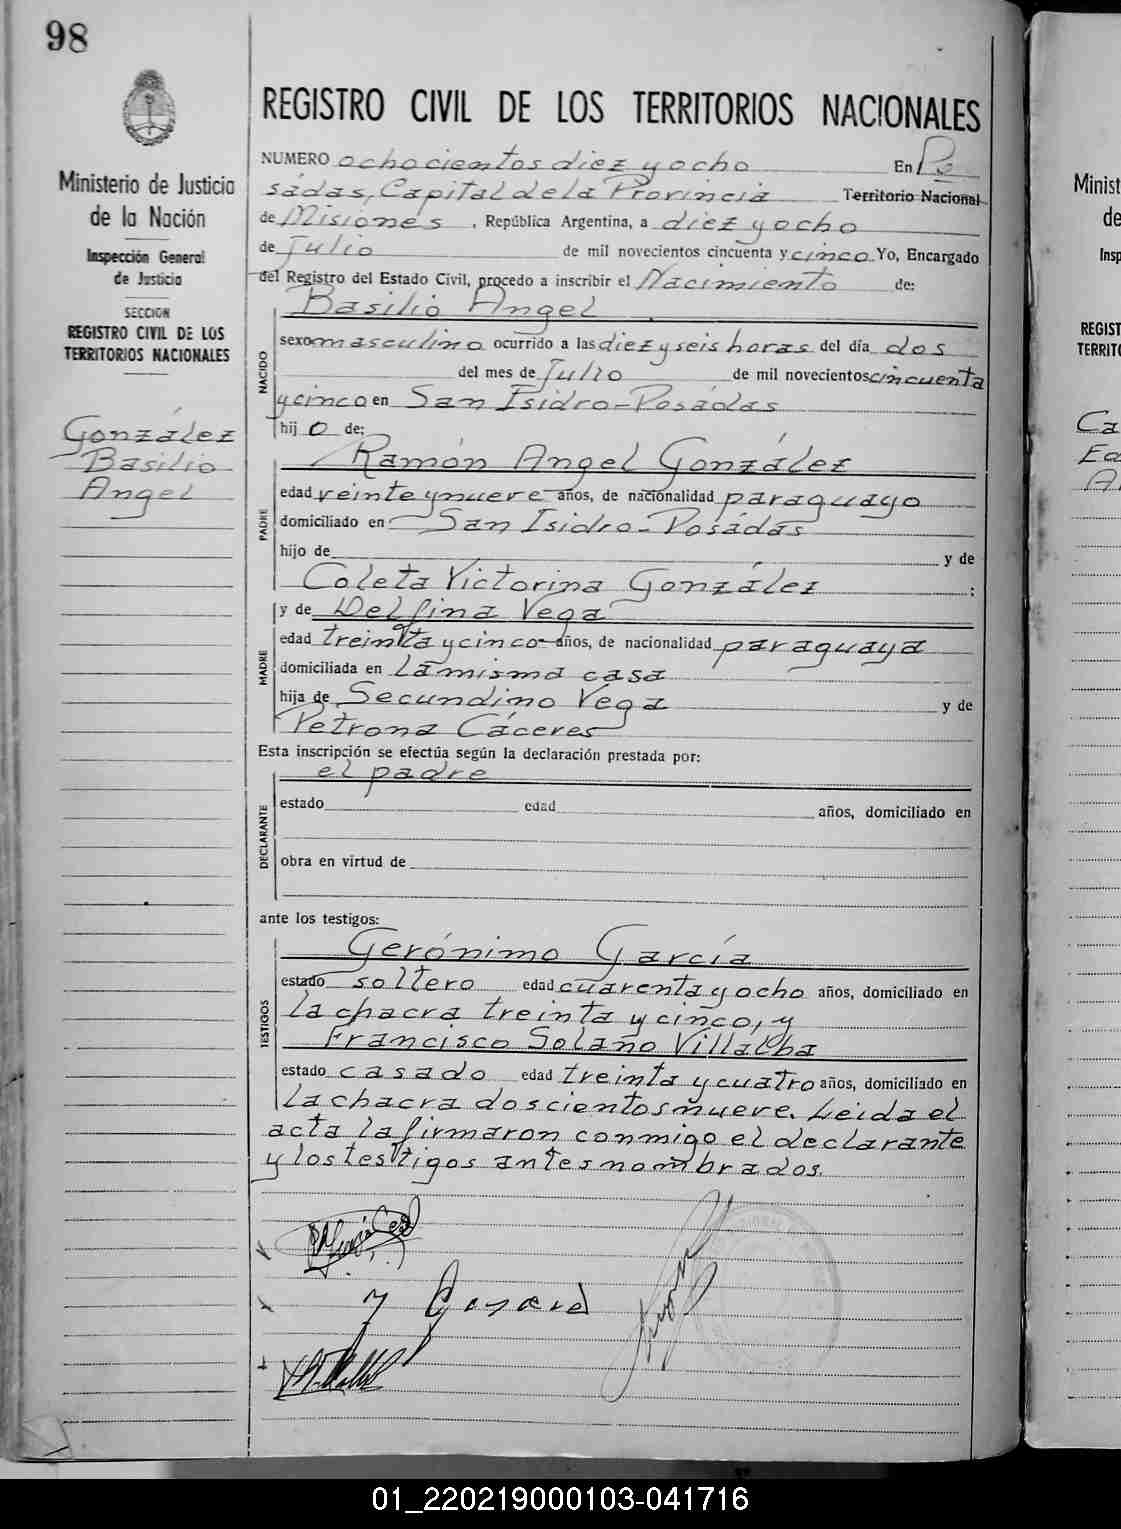 98
Ministerio de Justicia
de la Nación
Inspección General
de Justicia
SECCION
REGISTRO CIVIL DE LOS
TERRITORIOS NACIONALES
González
Basilio
Angel
REGISTRO CIVIL DE LOS TERRITORIOS NACIONALES
NUMERO ochocientos diez y ocho En Po
sádas, Capital de la Provincia Territorio Nacional
de Misiones, República Argentina, a diez y ocho
de Julio de mil novecientos cincuenta y cinco Yo, Encargado
del Registro del Estado Civil, procedo a inscribir el Nacimiento de:
Basilio Angel
NACIDO
sexo masculino ocurrido a las diez y seis horas del día dos
del mes de Julio de mil novecientos cincuenta
y cinco en San Isidro - Posádas
hijo de:
Ramón Angel González
PADRE
edad veinte y nueve años, de nacionalidad paraguayo
domiciliado en San Isidro - Posádas
hijo de y de
Coleta Victorina González :
y de Delfina Vega
MADRE
edad treinta y cinco años, de nacionalidad paraguaya
domiciliada en la misma casa
hija de Secundino Vega y de
Petrona Cáceres
Esta inscripción se efectúa según la declaración prestada por:
el padre
DECLARANTE
estado edad años, domiciliado en
obra en virtud de
ante los testigos:
Gerónimo García
TESTIGOS
estado soltero edad cuarenta y ocho años, domiciliado en
la chacra treinta y cinco, y
Francisco Solano Villalba
estado casado edad treinta y cuatro años, domiciliado en
la chacra doscientos nueve. Leida el
acta la firmaron conmigo el declarante
y los testigos antes nombrados.
Minist
de
Insp
REGIST
TERRITO
Ca
01_220219000103-041716